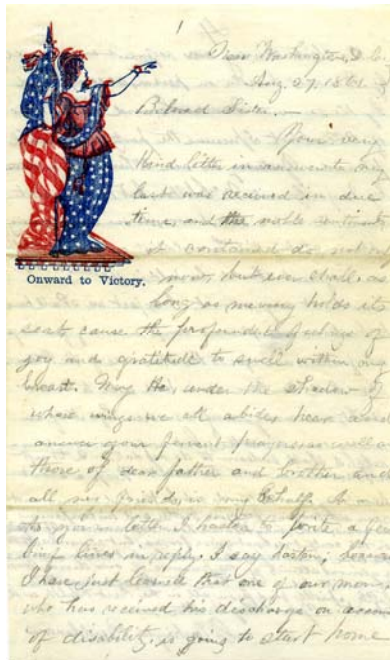 1
Near Washington, D.C.
Aug. 27, 1861.
Beloved Sister.—
Your very
kind letter in answer to my
last was received in due
time, and the noble sentiments
it contained do, not only
now, but ever shall, as
Onward to Victory.
long as memory holds its
seat cause the profoundest feelings of
joy and gratitude to swell within my
breast. May He, under the shadow of
whose wings we all abide, hear and
answer your fervent prayers as well as
those of dear father and brother and
all our friends, in my behalf. In
to your letter I hasten to write a few
brief lines in reply. I say hasten, because
I have just learned that one of our
who has received his discharge on account
of disability, is going to start home